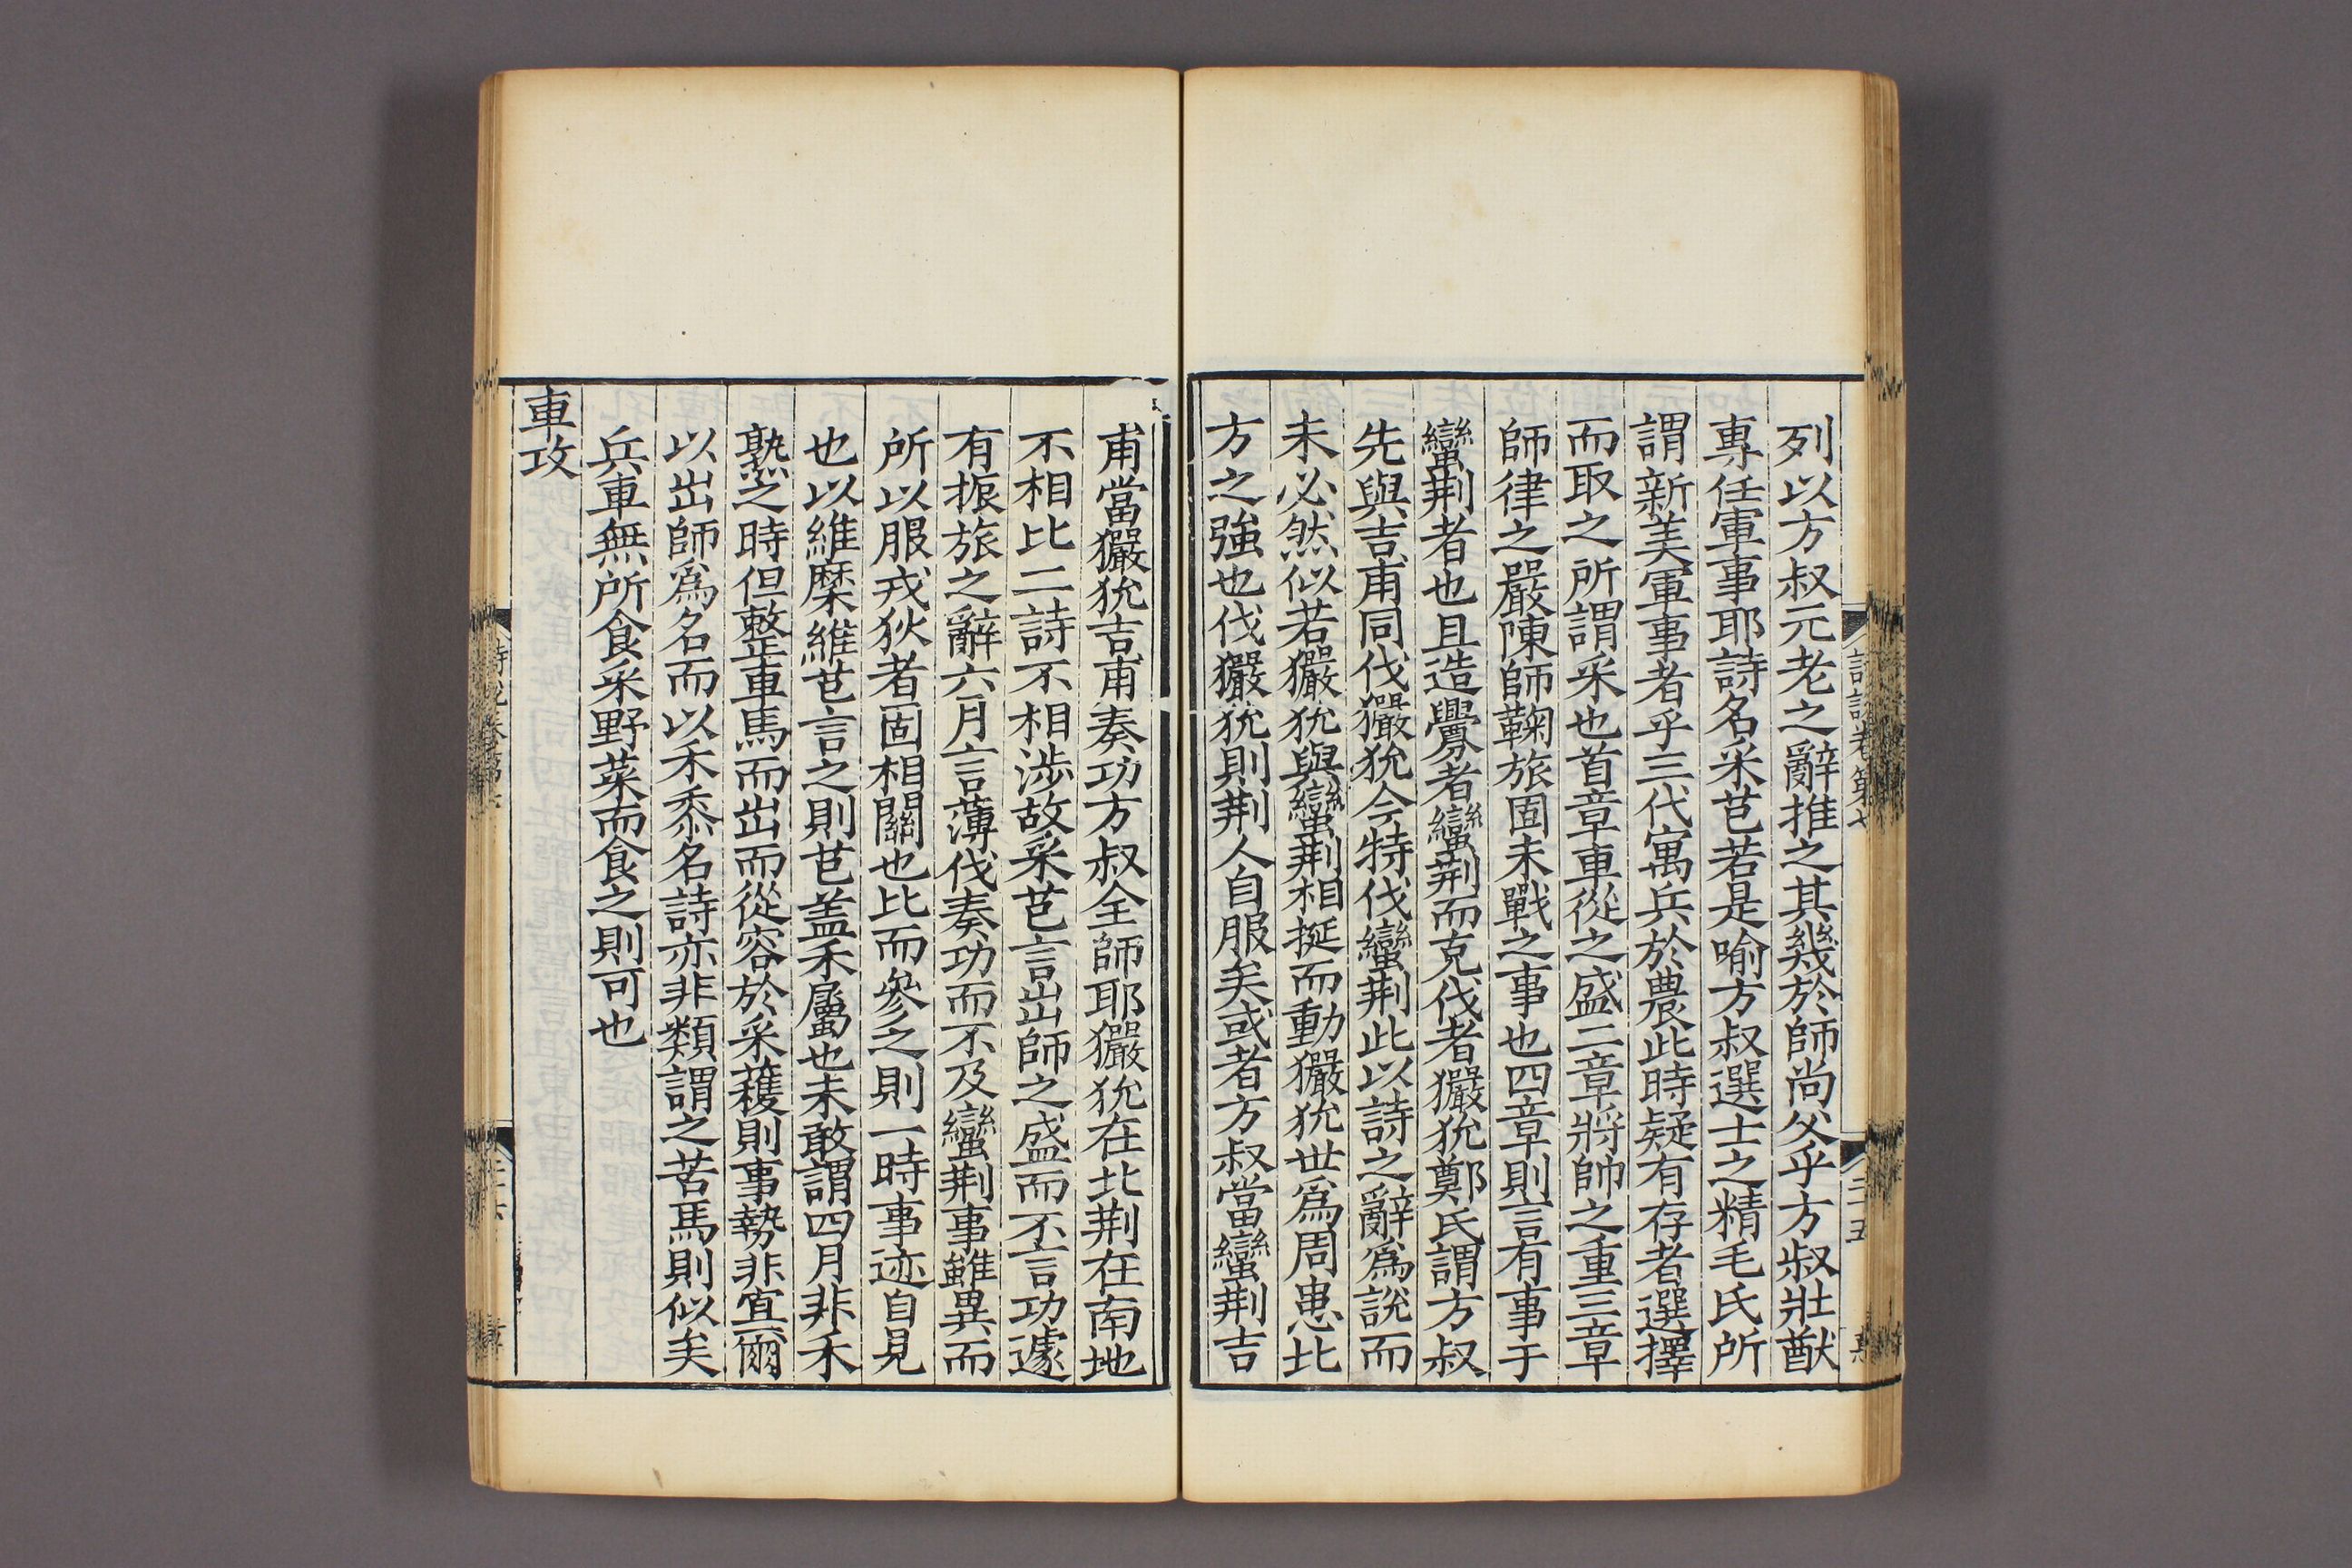 列以方叔元老之辭推之其幾於師尚父乎方叔壯猷
專任軍事耶詩名采芑若是喻方叔選士之精毛氏所
謂新美軍事者乎三代寓兵於農此時疑有存者選擇
而取之所謂采也首章車從之盛二章將帥之重三章
師律之嚴陳師鞠旅固未戰之事也四章則言有事于
蠻荆者也且造釁者蠻荆而克伐者玁狁鄭氏謂方叔
先與吉甫同伐玁狁今特伐蠻荆此以詩之辭爲說而
未必然似若玁狁與蠻荆相挻而動玁狁世爲周患北
方之強也伐玁狁則荆人自服矣或者方叔當蠻荆吉
甫當玁狁吉甫奏功方叔全師耶玁狁在北荆在南地
不相比二詩不相涉故采芑言出師之盛而不言功遽
有振旅之辭六月言薄伐奏功而不及蠻荆事雖異而
所以服戎狄者固相關也比而參之則一時事迹自見
也以維穈維芑言之則芑盖禾屬也未敢謂四月非禾
熟之時但整車馬而出而從容於采穫則事勢非宜爾
以出師爲名而以禾黍名詩亦非類謂之苦馬則似矣
兵車無所食采野菜而食之則可也
車攻
詩說卷第七
二十五